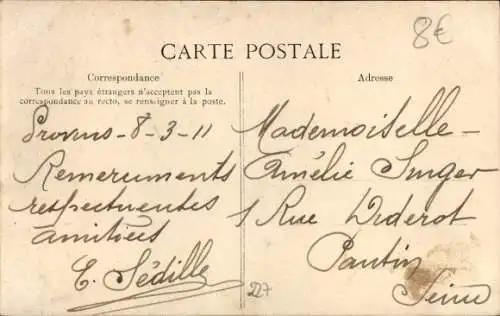 8€
CARTE POSTALE
Correspondance
Tous les pays étrangers n'acceptent pas la
correspondance au recto, se renseigner à la poste.
Provins - 8-3-11
Remerciments
respectueuses
amitiées
E. Sédille
Adresse
Mademoiselle -
Amélie Singer
1 Rue Diderot
Pantin
Seine
227